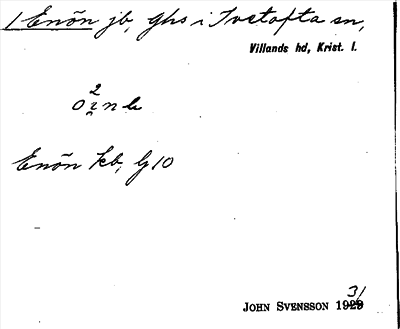 1 Enön jb, ghs i Ivetofta sn,
Villands hd, Krist. l.
Enön kb, Gj 10
31
JOHN SVENSSON 1929